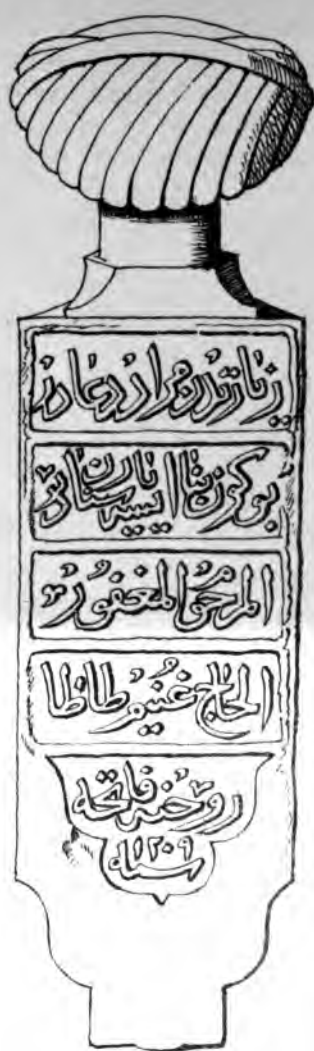 زیارتدن مراد دعادر
بوکون بکا ایسه یارن سکادر
المرحوم المغفور
الحاج غنیم طاظا
روحنه فاتحه
سنه ١٢٠٩